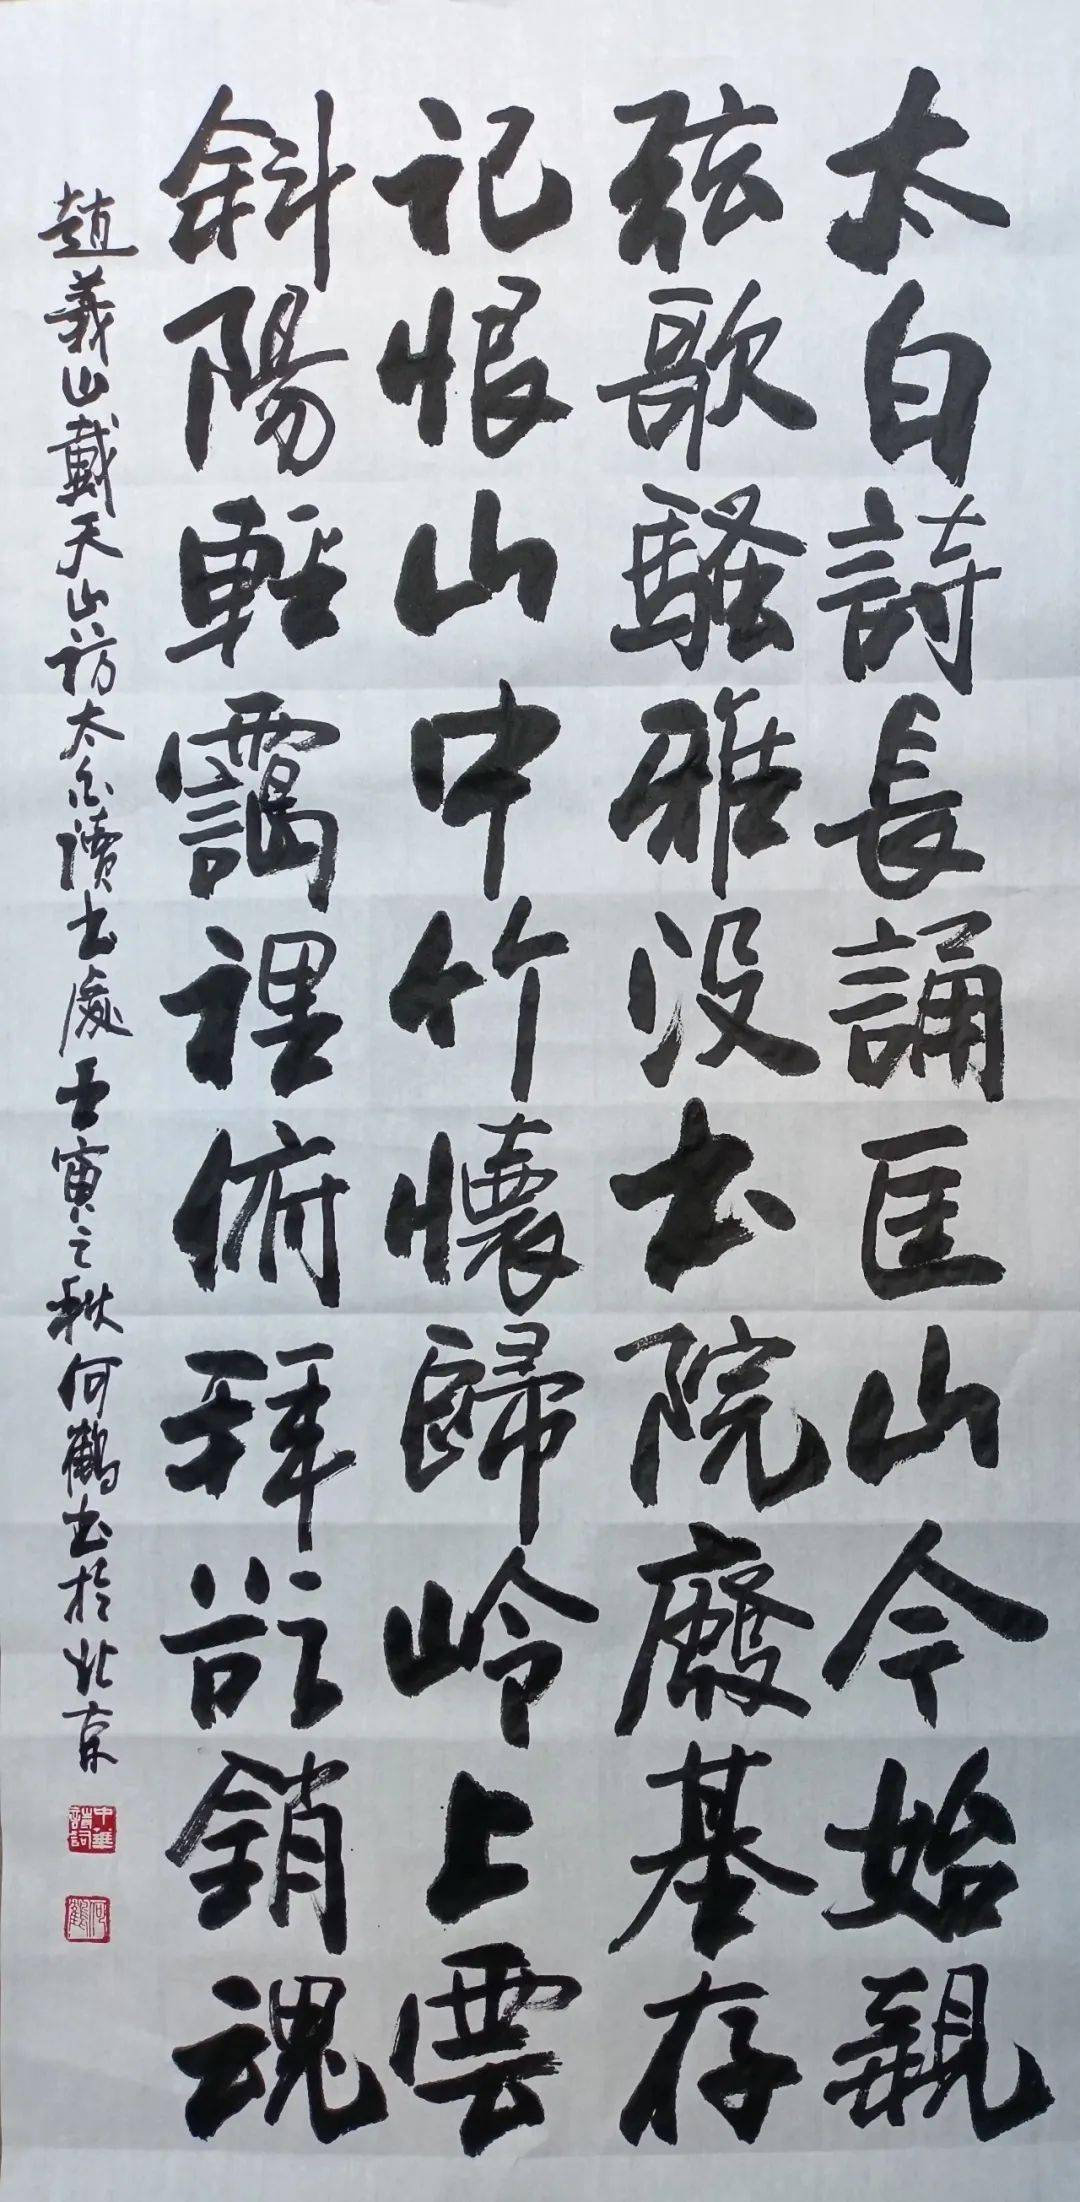 太白詩長誦匡山今始親
弦歌騷雅没書院廢基存
记恨山中竹懷歸岭上雲
斜陽輕靄裡俯拜欲銷魂
趙義山戴天山訪太白讀書處壬寅之秋何鶴書於北京
中華詩詞
何鶴